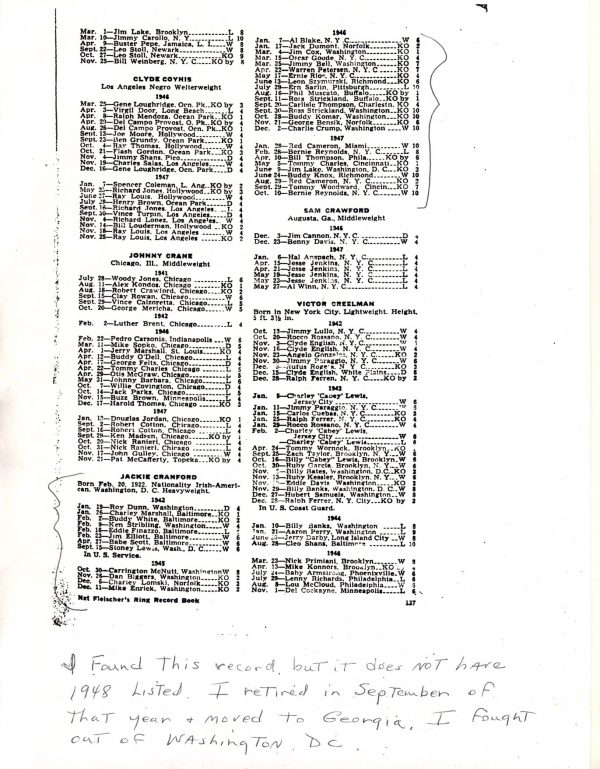 Mar. 1—Jim Lake, Brooklyn L 8
Mar. 10—Jimmy Carollo, N. Y. L 10
Apr. 9—Buster Pepe, Jamaica, L. I. W 8
Sept. 22—Leo Stoll, Newark W 8
Oct. 27—Leo Stoll, Newark L 8
Nov. 25—Bill Weinberg, N. Y. C. KO by 8
CLYDE COYHIS
Los Angeles Negro Welterweight
1946
Mar. 25—Gene Loughridge, Ocn. Pk. KO by 3
Apr. 3—Virgil Door, Long Beach L 4
Apr. 8—Ralph Mendoza, Ocean Park KO 1
Apr. 22—Del Campo Provost, O. Pk. KO by 4
Aug. 26—Del Campo Provost, Ocn. Pk. KO 1
Sept. 13—Joe Moore, Hollywood W 4
Sept. 23—Ben Grundy, Ocean Park KO 1
Oct. 4—Ray Thomas, Hollywood W 4
Oct. 21—Flash Gordon, Ocean Park KO 3
Nov. 4—Jimmy Shans, Pico D 4
Nov. 19—Charley Salas, Los Angeles W 4
Dec. 16—Gene Loughridge, Ocn. Park D 4
1947
Jan. 7—Spencer Coleman, L. Ang. KO by 2
May 23—Richard Jones, Hollywood KO by 3
June 27—Ray Louis, Hollywood W 4
July 28—Henry Brown, Ocean Park D 4
Sept. 16—Richard Jones, Los Angeles L 4
Sept. 30—Vince Turpin, Los Angeles D 4
Nov. 4—Richard Lopez, Los Angeles W 4
Nov. 14—Bill Louderman, Hollywood KO 2
Nov. 18—Ray Louis, Los Angeles W 4
Nov. 25—Ray Louis, Los Angeles KO 2
JOHNNY CRANE
Chicago, Ill., Middleweight
1941
July 28—Woody Jones, Chicago L 6
Aug. 11—Alex Kondos, Chicago KO 1
Aug. Robert Crawford, Chicago KO 2
Sept. 15—Clay Rowan, Chicago W 6
Sept. 29—Vince Calzoretta, Chicago L 5
Oct. 20—George Mericha, Chicago W 5
1942
Feb. 2—Luther Brent, Chicago L 4
1946
Feb. 22—Pedro Carsonia, Indianapolis W 6
Mar. 11—Mike Sopko, Chicago D 5
Apr. 1—Jerry Marshall, St. Louis KO 4
Apr. George Felts, Chicago D 4
Apr. 12—Buddy O'Dell, Chicago L 4
Apr. 22—Tommy Charles, Chicago L 5
Apr. 29—Otis McGraw, Chicago L 4
May 31—Johnny Barbara, Chicago L 6
Oct. 7—Willie Covington, Chicago D 4
Oct. 14—Jack Parks, Chicago L 5
Nov. 13—Buzz Brown, Minneapolis L 4
Dec. 17—Harold Thomas, Chicago KO
1947
Jan. 13—Douglas Jordan, Chicago KO 1
Sept. 2—Robert Cotton, Chicago L 4
Sept. 16—Robert Cotton, Chicago L 4
Sept. 29—Ken Madsen, Chicago KO by 1
Oct. 20—Nick Ranieri, Chicago L 4
Oct. 31—Nick Ranieri, Chicago L 4
Nov. 17—John Gulley, Chicago W 4
Nov. 21—Pat McCafferty, Topeka KO by 4
JACKIE CRANFORD
Born Feb. 20, 1922. Nationality Irish-Ameri-
can, Washington, D. C. Heavyweight.
1942
Jan. 19—Roy Dunn, Washington D 4
Jan. 26—Charley Marshall, Baltimore KO 2
Feb. 2—Buddy White, Baltimore KO 2
Feb. 9—Ken Stribling, Washington W 4
Feb. 16—Eddie Finazzo, Baltimore W 6
Feb. 23—Jim Elliott, Baltimore W 6
Apr. 27—Babe Scott, Baltimore W 6
Sept. 15—Stoney Lewis, Wash., D. C. W 6
In U. S. Service.
1945
Oct. 30—Carrington McNutt, Washington W 6
Nov. 26—Dan Biggers, Washington KO 2
Dec. 6—Charley Lomski, Norfolk KO 2
Dec. 11—Mike Enrick, Washington KO 2
Nat Fleischer's Ring Record Book
1946
Jan. 7—Al Blake, N. Y. C. W 6
Jan. 17—Jack Dumont, Norfolk KO 2
Mar. 4—Jim Cox, Washington KO 1
Mar. 15—Oscar Goode, N. Y. C. KO 4
Mar. 25—Jimmy Bell, Washington KO 4
Apr. 22—Warren Petersen, N. Y. C. KO 7
May 17—Ernie Rios, N. Y. C. KO 4
June 13—Leon Szymurski, Richmond KO 6
July 29—Ern Sarlin, Pittsburgh L 10
Aug. 16—Phil Muscato, Buffalo KO by 1
Sept. 11—Ross Strickland, Buffalo KO by 1
Sept. 20—Carlisle Thompson, Charleston KO 4
Sept. 30—Ross Strickland, Washington W 10
Oct. 28—Buddy Komar, Washington KO 10
Nov. 21—George Bensik, Norfolk KO 6
Dec. 2—Charlie Crump, Washington W 10
1947
Jan. 28—Red Cameron, Miami W 10
Feb. 28—Bernie Reynolds, N. Y. C. L 8
Apr. 10—Bill Thompson, Phila. KO by 6
May 5—Tommy Charles, Cincinnati KO 1
June 9—Jim Lake, Washington, D. C. KO 3
June 24—Buddy Knox, Richmond W 10
Aug. 29—Red Cameron, N. Y. C. KO 2
Sept. 29—Tommy Woodward, Cincin. KO 7
Oct. 10—Bernie Reynolds, N. Y. C. W 10
SAM CRAWFORD
Augusta, Ga., Middleweight
1946
Dec. 3—Jim Cannon, N. Y. C. D 4
Dec. 23—Benny Davis, N. Y. C. W 4
1947
Jan. 6—Hal Anspach, N. Y. C. L 4
Apr. 15—Jesse Jenkins, N. Y. C. L 4
Apr. 21—Jesse Jenkins, N. Y. C. L 4
May 19—Jesse Jenkins, N. Y. C. L 4
May 23—Jesse Jenkins, N. Y. C. L 4
May 27—Al Winn, N. Y. C. L 4
VICTOR CREELMAN
Born in New York City. Lightweight. Height,
5 ft. 3½ in.
1942
Oct. 13—Jimmy Lullo, N. Y. C. W 4
Oct. 20—Rocco Rossano, N. Y. C. W 4
Nov. 3—Clyde English, N. Y. C. L 4
Nov. 16—Clyde English, N. Y. C. W 4
Nov. 23—Angelo Gonzales, N. Y. C. KO 2
Nov. 30—Jimmy Paraggio, N. Y. C. W 4
Dec. Rufus N. Y. C. KO 3
Dec. 15—Clyde English, White Plains D 4
Dec. 28—Ralph Ferren, N. Y. C. KO by 2
1943
Jan. 5—Charley 'Cabey' Lewis,
Jersey City W 6
Jan. 11—Jimmy Paraggio, N. Y. C. W 5
Jan. 15—Carlos Cuebas, N. Y. C. KO 3
Jan. 25—Ralph Ferren, N. Y. C. KO 2
Jan. 29—Rocco Rossano, N. Y. C. W 4
Feb. 2—Charley 'Cabey' Lewis,
Jersey City W 6
Charley 'Cabey' Lewis L 6
Apr. 24—Tommy Wornock, Brooklyn KO
Sept. 25—Zach Taylor, Brooklyn, N. Y. W 6
Oct. 16—Billy "Cabey" Lewis, Brooklyn W 6
Oct. 30—Ruby Garcia, Brooklyn, N. Y. W 6
Nov. Billy Bates, Washington, D.C. KO 2
Nov. 13—Ruby Kessler, Brooklyn, N. Y. W 6
Nov. Eddie Davis, Washington KO 3
Nov. 29—Billy Banks, Washington, D. C. W 8
Dec. 27—Hubert Samuels, Washington W 8
Dec. 28—Ralph Ferren, N. Y. City KO by 2
In U. S. Coast Guard.
1944
Jan. 10—Billy Banks, Washington L 8
Mar. 21—Aaron Perry, Washington L 8
June Jerry Darby, Long Island City W 8
Aug. 28—Cleo Shans, Baltimore L 10
1946
Mar. 23—Nick Primiani, Brooklyn W 8
Apr. 13—Mike Konnors, Brooklyn KO 4
July 24—Baby Armstrong, Phoenixville W 6
July 29—Lenny Richards, Philadelphia L 6
Aug. 8—Lou McCloud, Philadelphia W 6
Nov. 1—Del Cockayne, Minneapolis L 6
137
I Found This record, but it does NOT have
1948 Listed. I retired in September of
that year + moved to Georgia. I Fought
out of WAshington, DC.